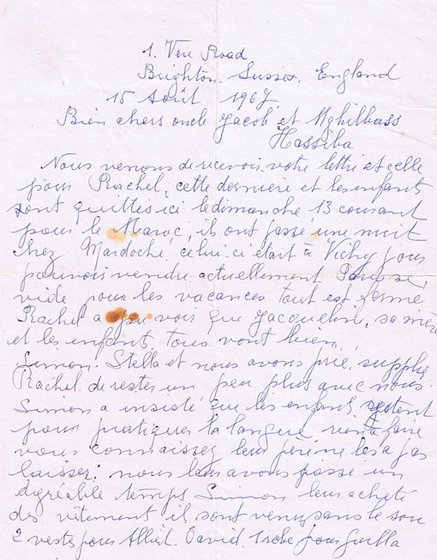 1. Vere Road
Brighton. Sussex. England
15 Août 1967
Bien chers oncle Jacob et Mghilbass
Hassiba
Nous venons de recevoir votre lettre et celle
pour Rachel, cette derniere et les enfants
sont quittés ici le dimanche 13 courant
pour le Maroc, ils ont passé une nuit
chez Mardoché, celui. ci était à Vichy pour
pouvoir vendre actuellement
vide pour les vacances tout est fermé
Rachel a pu voir que Jacqueline, sa mère
et les enfants tous vont bien.
Simon. Stella et nous avons prié, supplié
Rachel de rester un peu plus avec nous.
Simon a insisté que les enfants restent
pour pratiquer la langue,
vous connaissez leur père ne les a pas
laisser: nous leur avons passé un
agréable temps Simon leur acheté
des vêtement il sont venu sans le sou
2 vestes pour David,